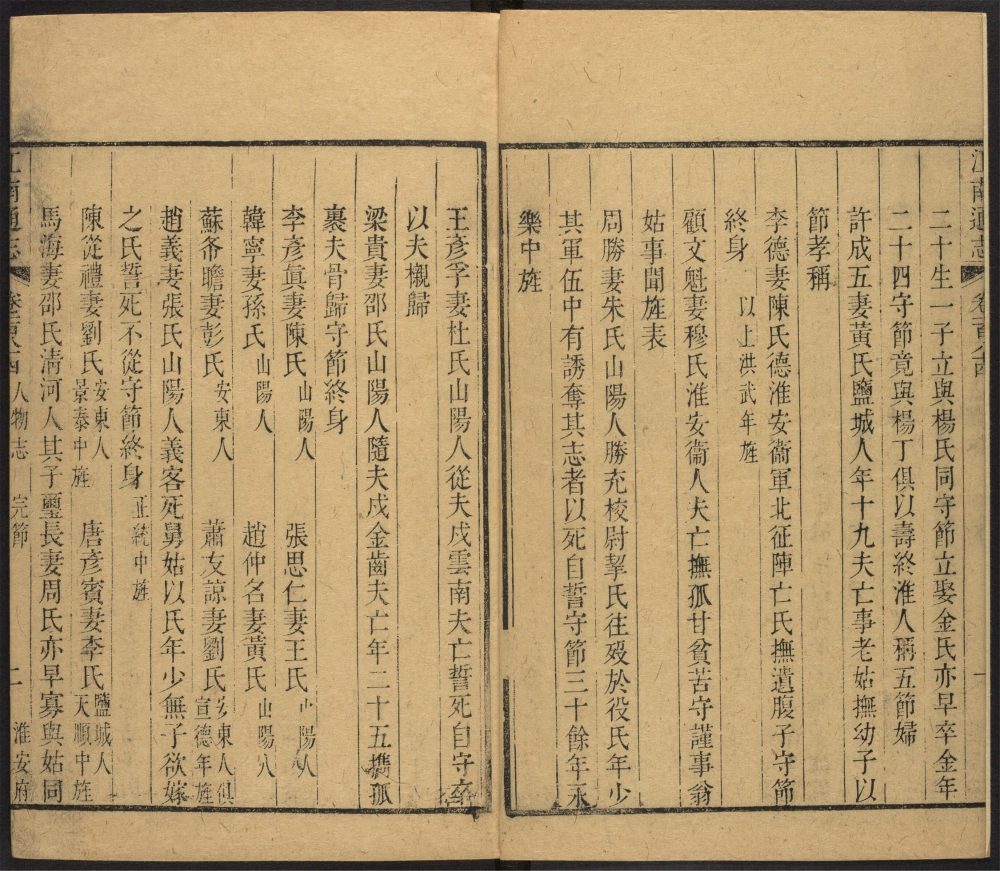 江南通志 卷百八十四 一
二十生一子立與楊氏同守節立娶金氏亦早卒金年
二十四守節竟與楊丁俱以壽終淮人稱五節婦
許成五妻黃氏鹽城人年十九夫亡事老姑撫幼子以
節孝稱
李德妻陳氏德淮安衞軍北征陣亡氏撫遺腹子守節
終身 以上洪武年旌
顧文魁妻穆氏淮安衞人夫亡撫孤甘貧苦守謹事翁
姑事聞旌表
周勝妻朱氏山陽人勝充校尉挈氏往歿於役氏年少
其軍伍中有誘奪其志者以死自誓守節三十餘年永
樂中旌
王彥孚妻杜氏山陽人從夫戍雲南夫亡誓死自守卒
以夫櫬歸
梁貴妻邵氏山陽人隨夫戍金齒夫亡年二十五攜孤
裹夫骨歸守節終身
李彥眞妻陳氏 山陽人 張思仁妻王氏 山陽人
韓寧妻孫氏 山陽人 趙仲名妻黃氏 山陽人
蘇希瞻妻彭氏 安東人 蕭友諒妻劉氏 安東人俱宣德年旌
趙義妻張氏山陽人義客死舅姑以氏年少無子欲嫁
之氏誓死不從守節終身 正統中旌
陳從禮妻劉氏 安東人景泰中旌 唐彥賓妻李氏 鹽城人天順中旌
馬海妻邵氏淸河人其子璽長妻周氏亦早寡與姑同
江南通志 人物志 完節 二 淮安府